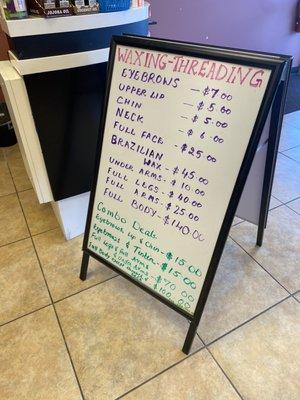 JOJOBA OIL
WAXING-THREADING
EYEBROWS - $7.00
UPPER LIP - $5.00
CHIN - $5.00
NECK - $6.00
FULL FACE - $25.00
BRAZILIAN
WAX - $45.00
UNDER ARMS - $10.00
FULL LEGS - $40.00
FULL ARMS - $25.00
FULL BODY - $140.00
Combo Deals
Eyebrows Upper Lip & Chin - $15.00
Eyebrows & Tinten - $15.00
Full Legs & Full Arms $70.00
$100.00